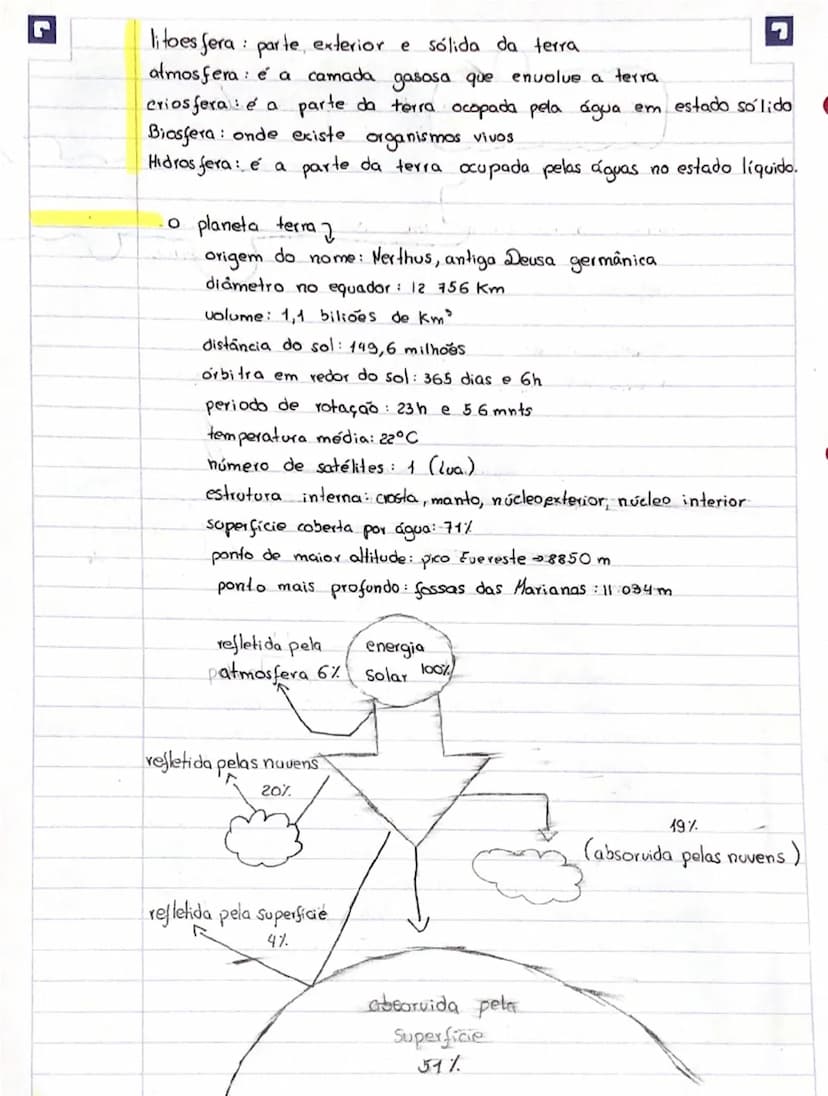 litoesfera: parte exterior e sólida da terra
atmosfera: é a camada gasosa que envolue a terra
criosfera: é a parte da terra ocopada pela água em estado sólido
Biosfera: onde existe organismos vivos
Hidrosfera: é a parte da terra ocupada pelas águas no estado líquido.
o planeta terra
origem do nome: Nerthus, antiga Deusa germânica
diâmetro no equador: 12 756 Km
volume: 1,1 biliões de Km³
distância do sol: 149,6 milhões
órbitra em redor do sol: 365 dias e 6h
periodo de rotação: 23h e 56 mnts
temperatura média: 22°C
número de satélites: 1 (lua)
estrutura interna: crosta, manto, núcleo exterior, núcleo interior
superfície coberta por água: 71%
ponto de maior altitude: pico Euereste → 8850 m
ponto mais profundo: fossas das Marianas: 11 034 m
refletida pela
atmosfera 6%
energia
solar 100%
refletida pelas nuvens
20%
19%
(absorvida pelas nuvens)
refletida pela superfície
4%
absorvida pela
superfície
51%